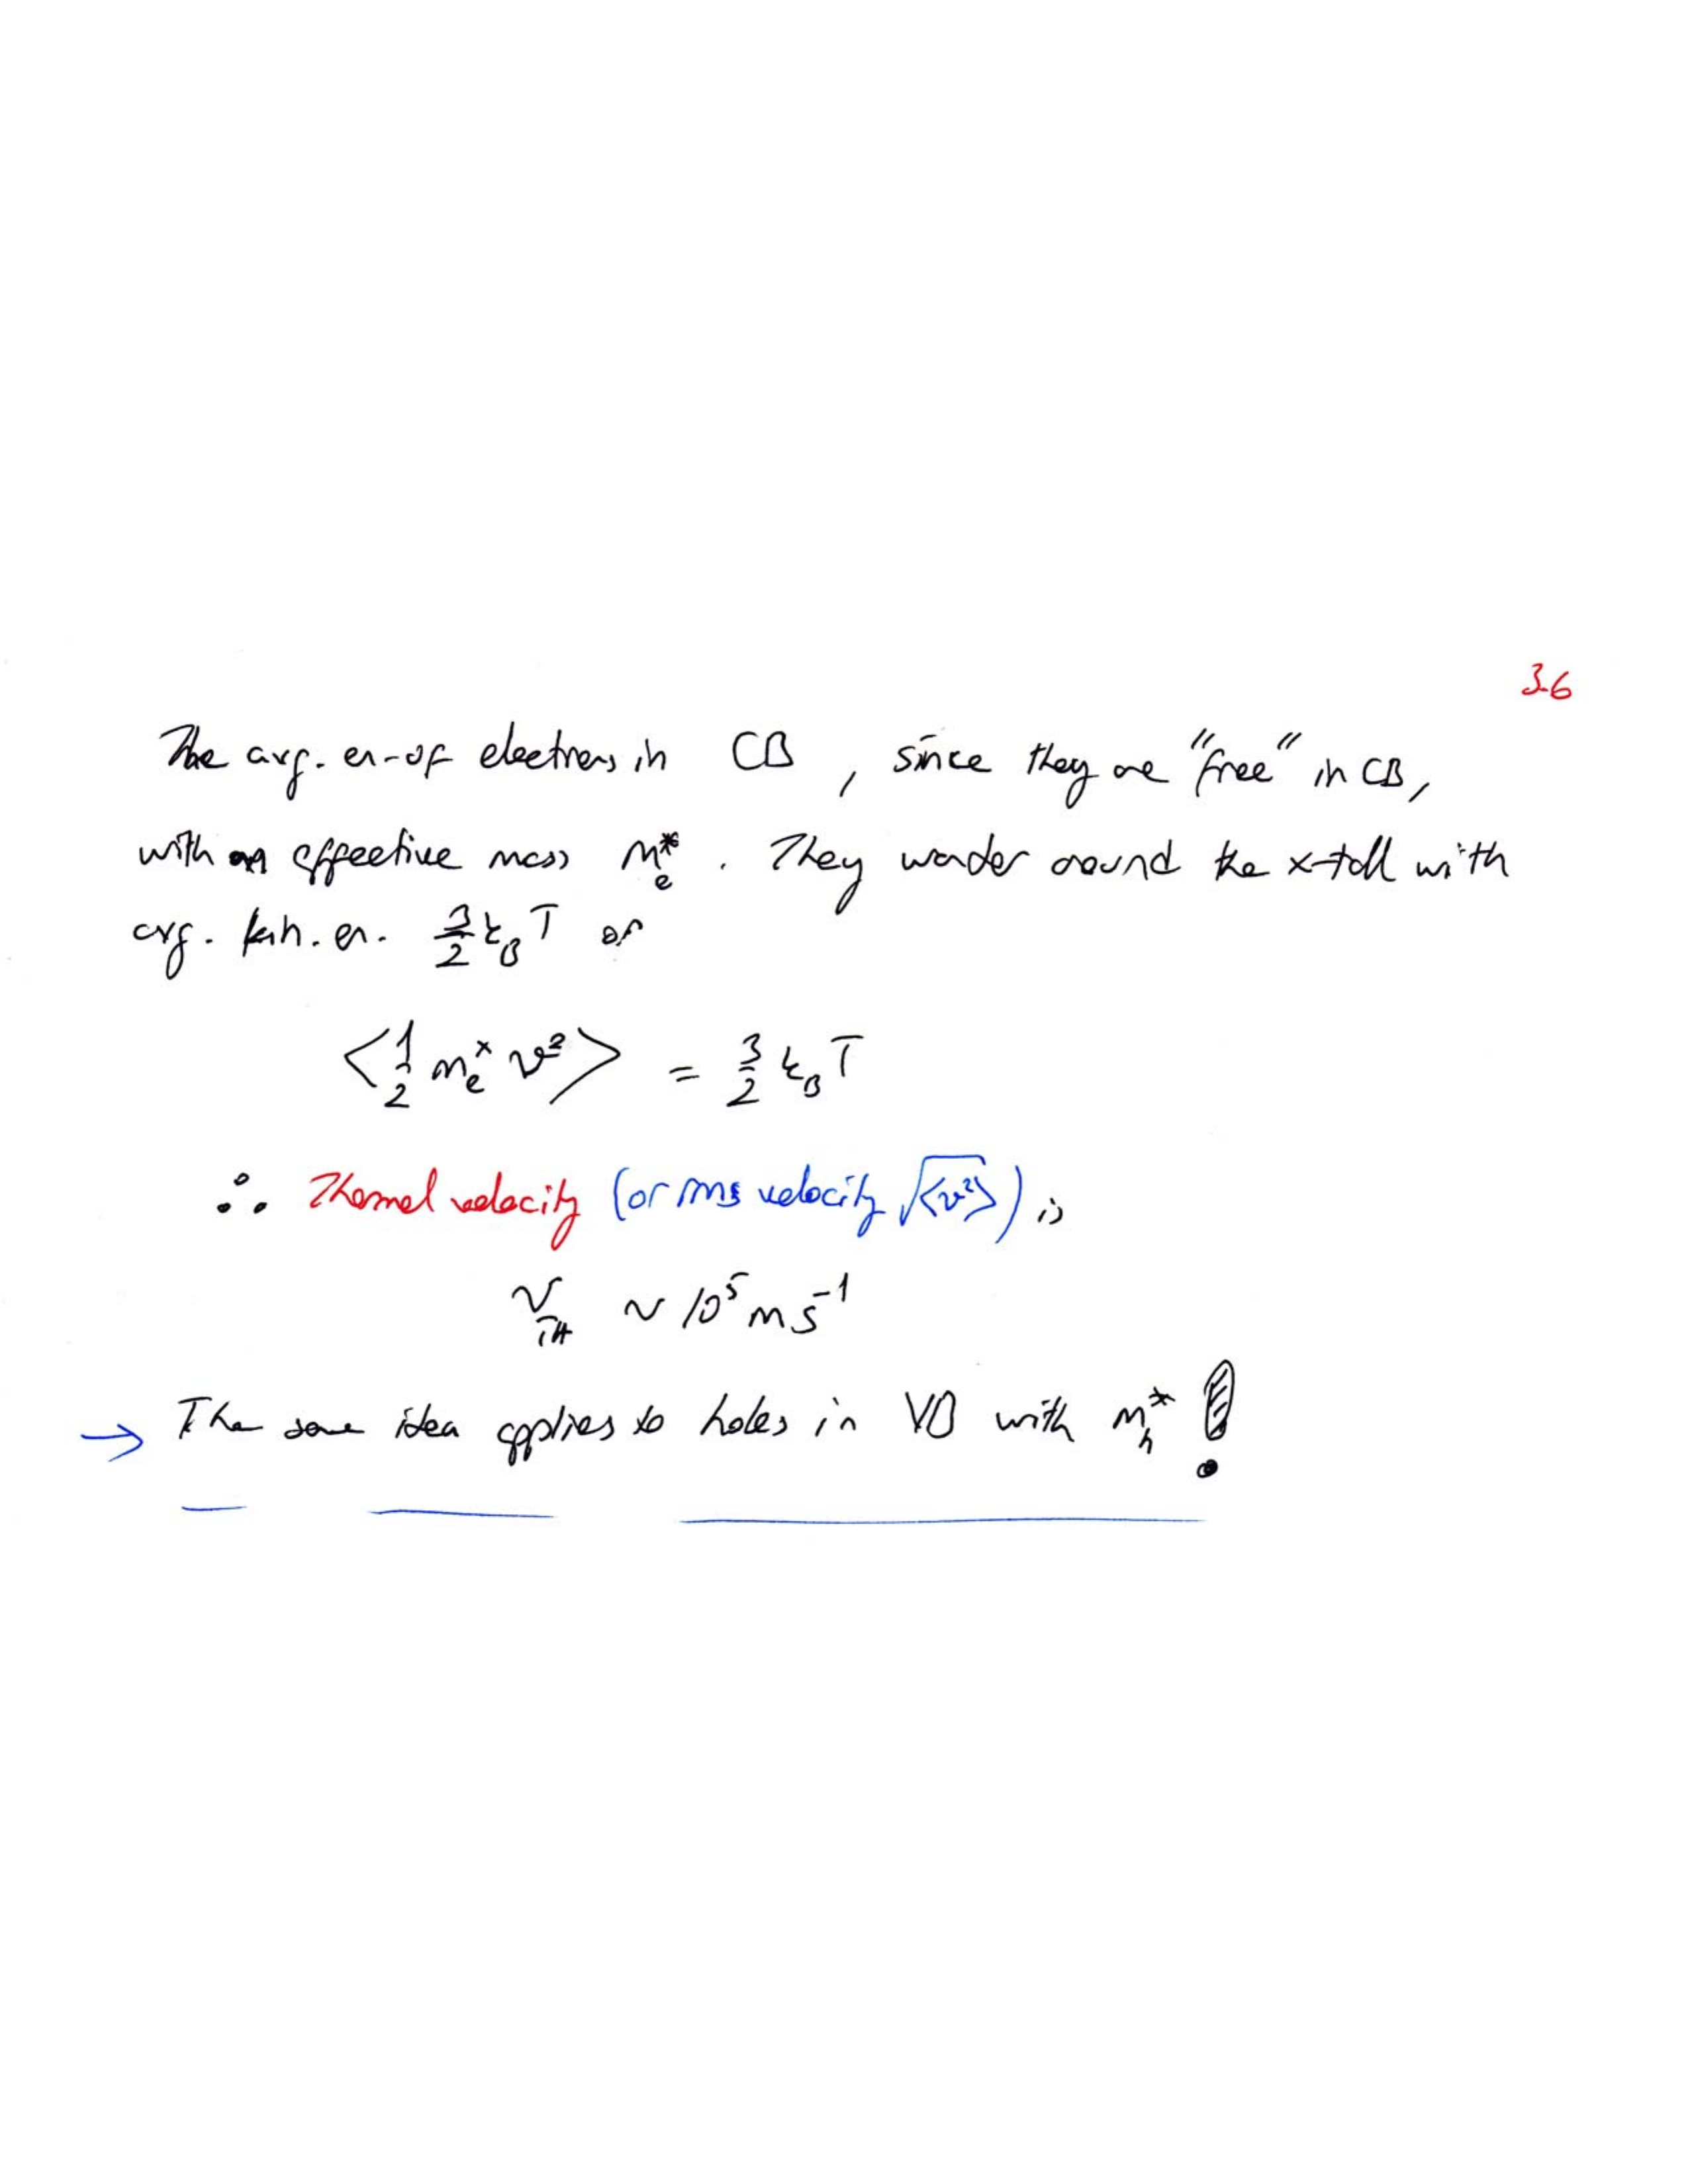 3.6
The avg. en. of electrons in CB, since they are "free" in CB,
with an effective mass mₑ*. They wander around the x-tall with
avg. kin. en. 3/2 k_B T or
⟨1/2 mₑ* v²⟩ = 3/2 k_B T
∴ Thermal velocity (or rms velocity √⟨v²⟩) is
v_TH ~ 10⁵ m s⁻¹
→ The same idea applies to holes in VB with m_h* !